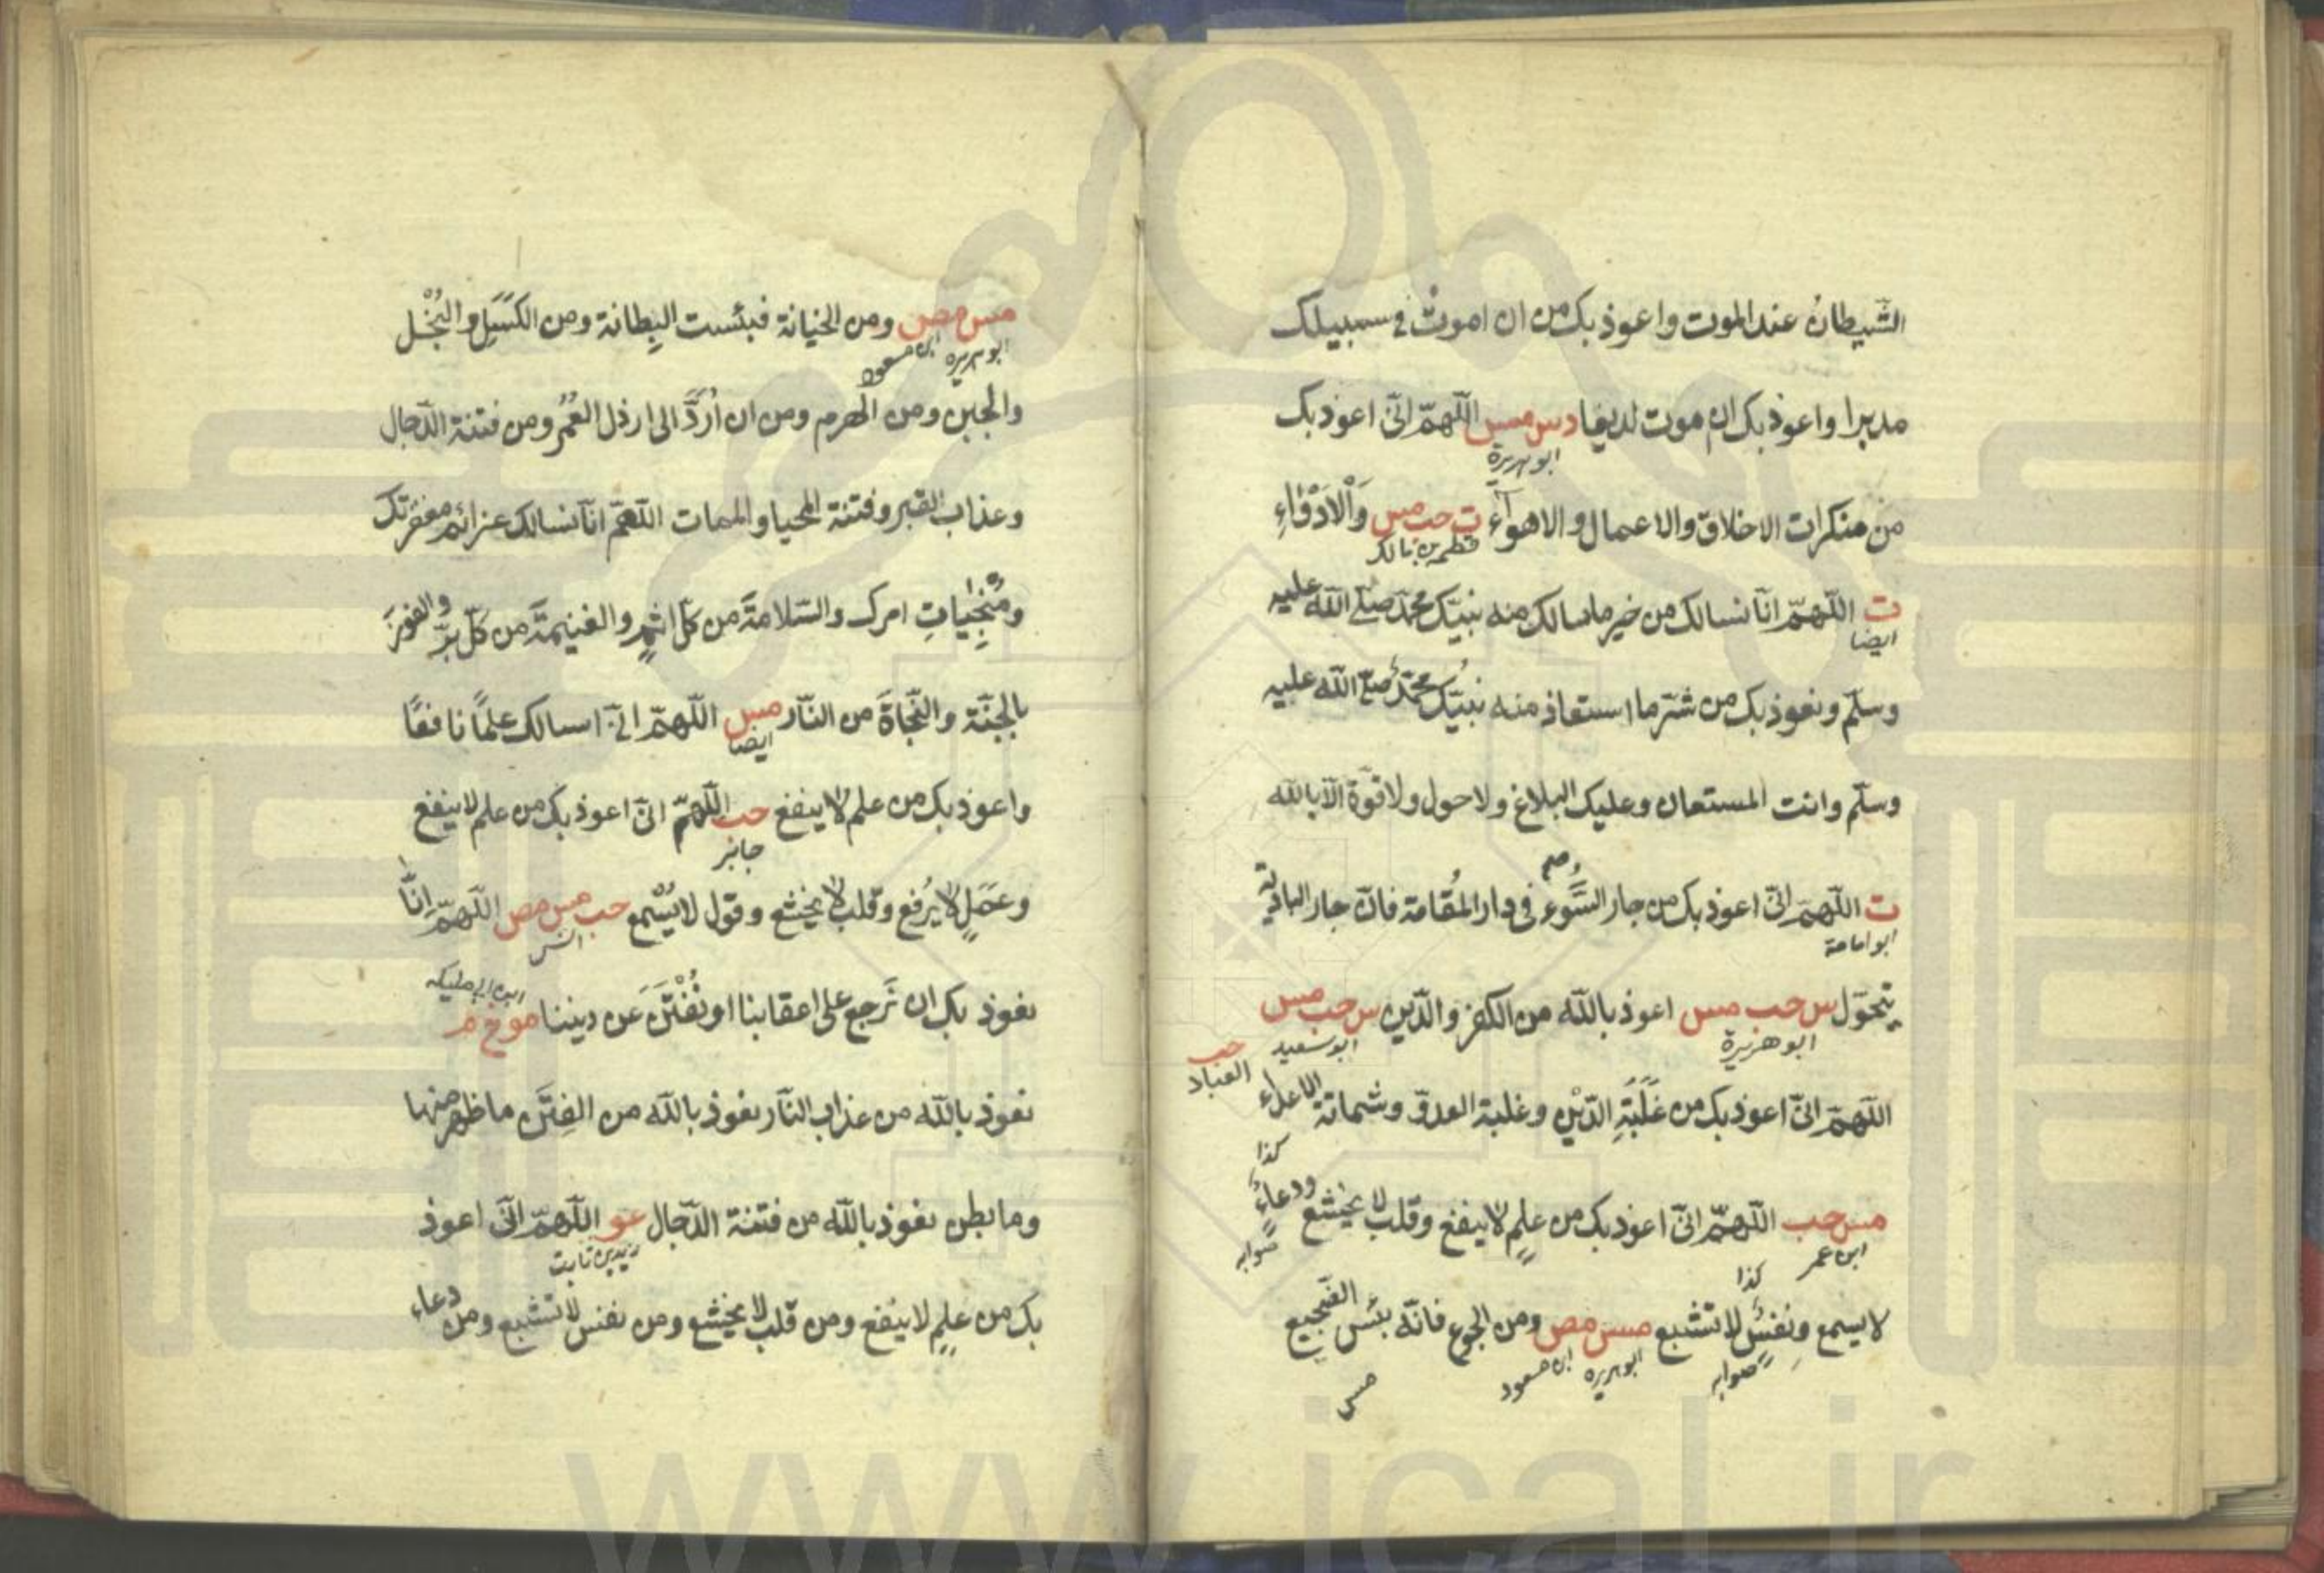 الشيطان عند الموت واعوذ بك من ان اموت في سبيلك
مدبرا واعوذ بك ان موت لديغا دس مس اللهم اني اعوذ بك
ابو هريرة
من منكرات الاخلاق والاعمال والاهواء ت حب مس والادواء
قطبه بن مالك
ت اللهم انا نسالك من خير ما سالك منه نبيك محمد صلى الله عليه
ايضا
وسلم ونعوذ بك من شر ما استعاذ منه نبيك محمد صلى الله عليه
وسلم وانت المستعان وعليك البلاغ ولا حول ولا قوة الا بالله
ت اللهم اني اعوذ بك من جار السوء في دار المقامة فان جار البادية
ابو امامة
يتحول س حب مس اعوذ بالله من الكفر والدين س حب مس
ابو هريرة ابو سعيد
حب
العباد
اللهم اني اعوذ بك من غلبة الدين وغلبة العدو وشماتة الاعداء
كذا
مس حب اللهم اني اعوذ بك من علم لا ينفع وقلب لا يخشع ودعاء
ابن عمر صوابه
كذا
لا يسمع ونفس لا تشبع مس مص ومن الجوع فانه بئس الضجيع
صوابه ابو هريره ابن مسعود
مس
مس مص ومن الخيانة فبئست البطانة ومن الكسل والبخل
ابو هريره ابن مسعود
والجبن ومن الهرم ومن ان ارد الى ارذل العمر ومن فتنة الدجال
وعذاب القبر وفتنة المحيا والممات اللهم انا نسالك عزائم مغفرتك
ومنجيات امرك والسلامة من كل اثم والغنيمة من كل بر والفوز
بالجنة والنجاة من النار مس اللهم اني اسالك علما نافعا
ايضا
واعوذ بك من علم لا ينفع حب اللهم اني اعوذ بك من علم لا ينفع
جابر
وعمل لا يرفع وقلب لا يخشع وقول لا يسمع حب مس مص اللهم انا
انس
ابن ابي مليكه
نعوذ بك ان نرجع على اعقابنا او نفتن عن ديننا مو خ م
نعوذ بالله من عذاب النار نعوذ بالله من الفتن ما ظهر منها
وما بطن نعوذ بالله من فتنة الدجال عو اللهم اني اعوذ
زيد بن ثابت
بك من علم لا ينفع ومن قلب لا يخشع ومن نفس لا تشبع ومن دعاء
www.ical.ir